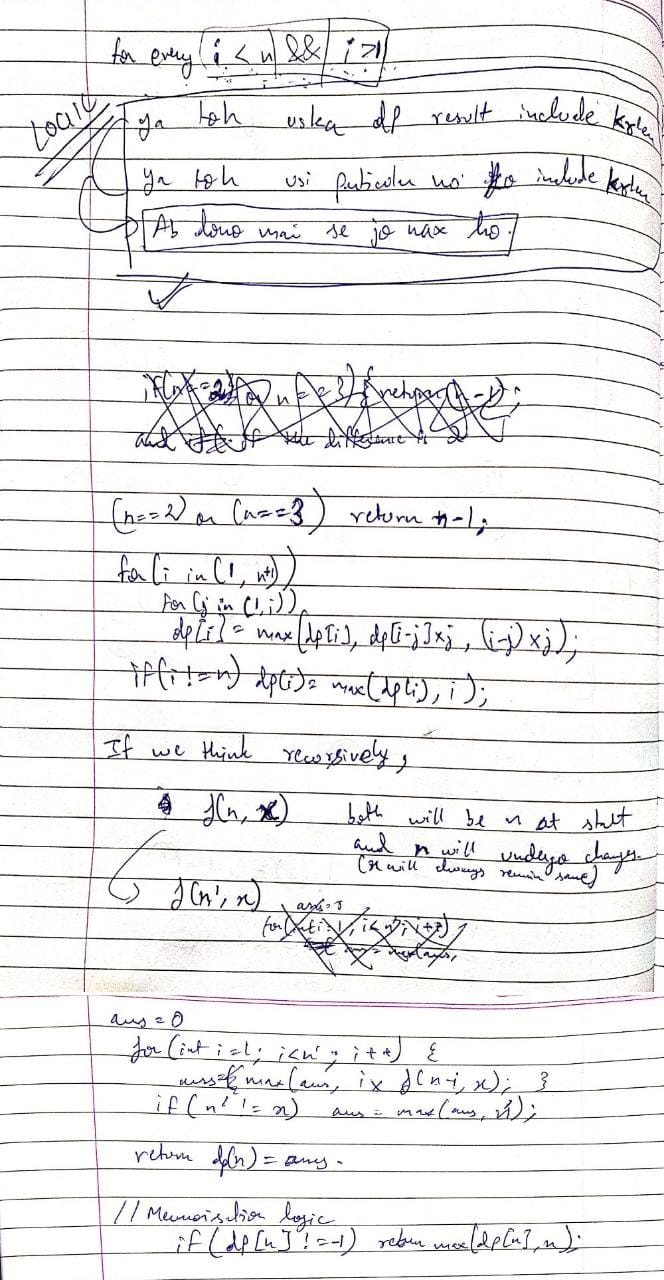 for every i < n && i > 1
LOGIC
ya toh uska dp result include krlen
ya toh usi particular no ko include krlen
Ab dono mai se jo max ho.
if (n==2) or n==3) { return (n-1);
and if the difference is 2
(n==2) or (n==3) return n-1;
for (i in (1, n+1))
for (j in (1,i))
dp[i] = max(dp[i], dp[i-j]×j, (i-j)×j);
if (i != n) dp(i) = max(dp(i), i);
If we think recursively,
f(n, x) both will be n at start
and n will undergo changes.
(x will always remain same)
f(n', x)
ans=0
for (int i=1; i<n'; i++)
ans = max(ans,
ans = 0
for (int i=1; i<n'; i++) {
ans = max(ans, i× f(n-i, x); }
if (n' != x) ans = max(ans, n');
return dp(n) = ans.
// Memoisation logic
if (dp[n] != -1) return max(dp[n], n);